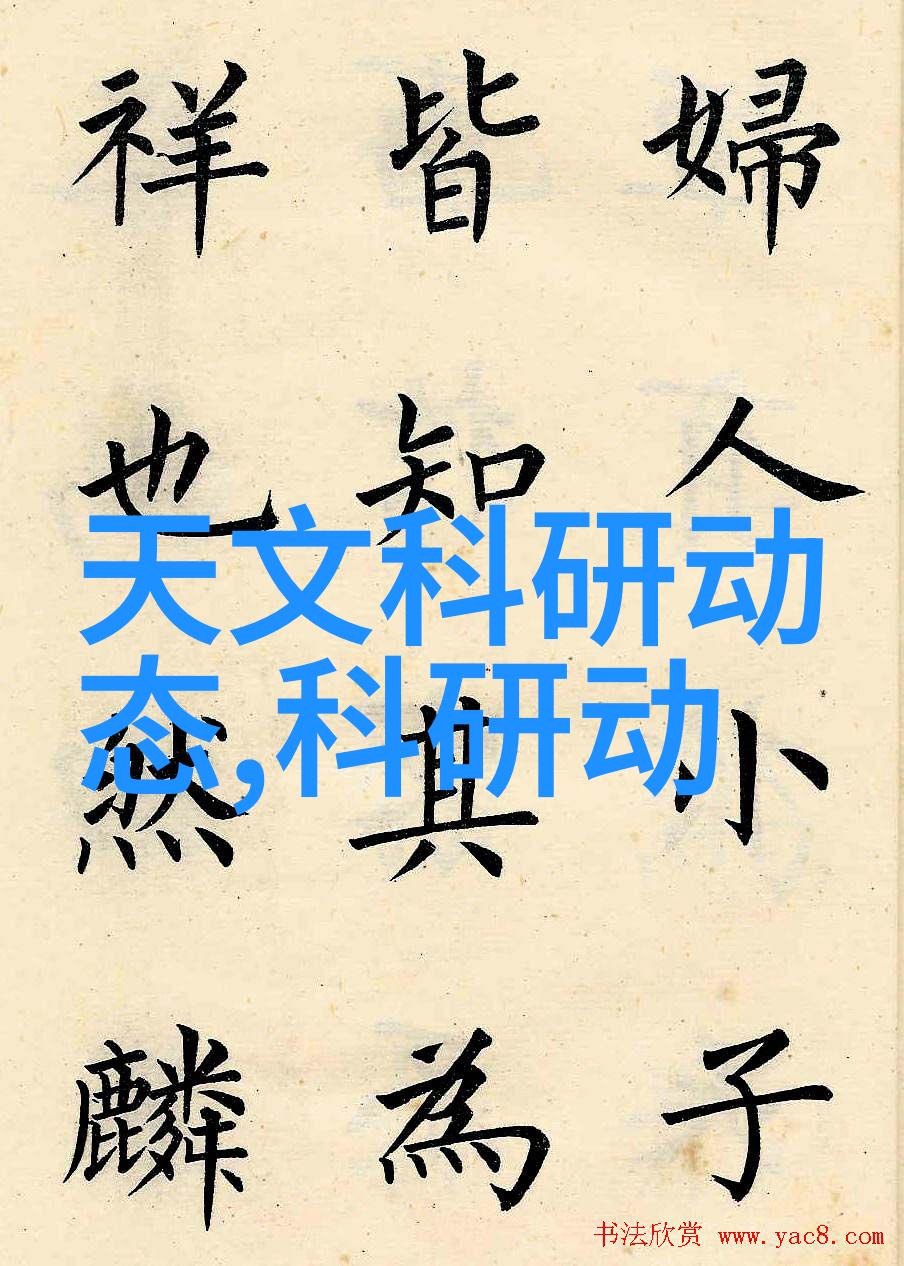 婦人小子
皆知其為
祥也然麟
天文科研动
态,科研动
书法欣赏 www.yac8.com